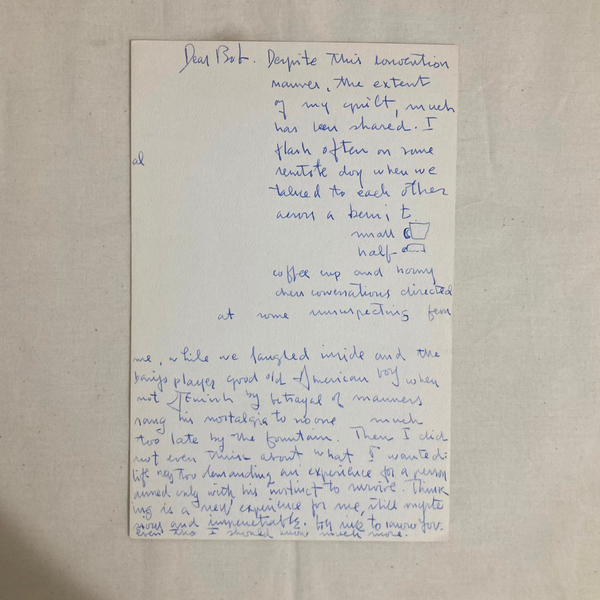 Dear Bob. Despite this convention
manner, the extent
of my guilt, much
has been shared. I
flash often on some
remote day when we
talked to each other
al
across a
small
half
coffee cup and horny
chess conversations directed
at some unsuspecting fem
me, while we laughed inside and the
banjo player good old American boy when
not Jewish by betrayal of manners
sang his nostalgia to no one much
too late by the fountain. Then I did
not even think about what I wanted:
life was too demanding an experience for a person
armed only with his instinct to survive. Think
ing is a new experience for me, still myste
rious and impenetrable. to me to know you
even tho I should know much more.